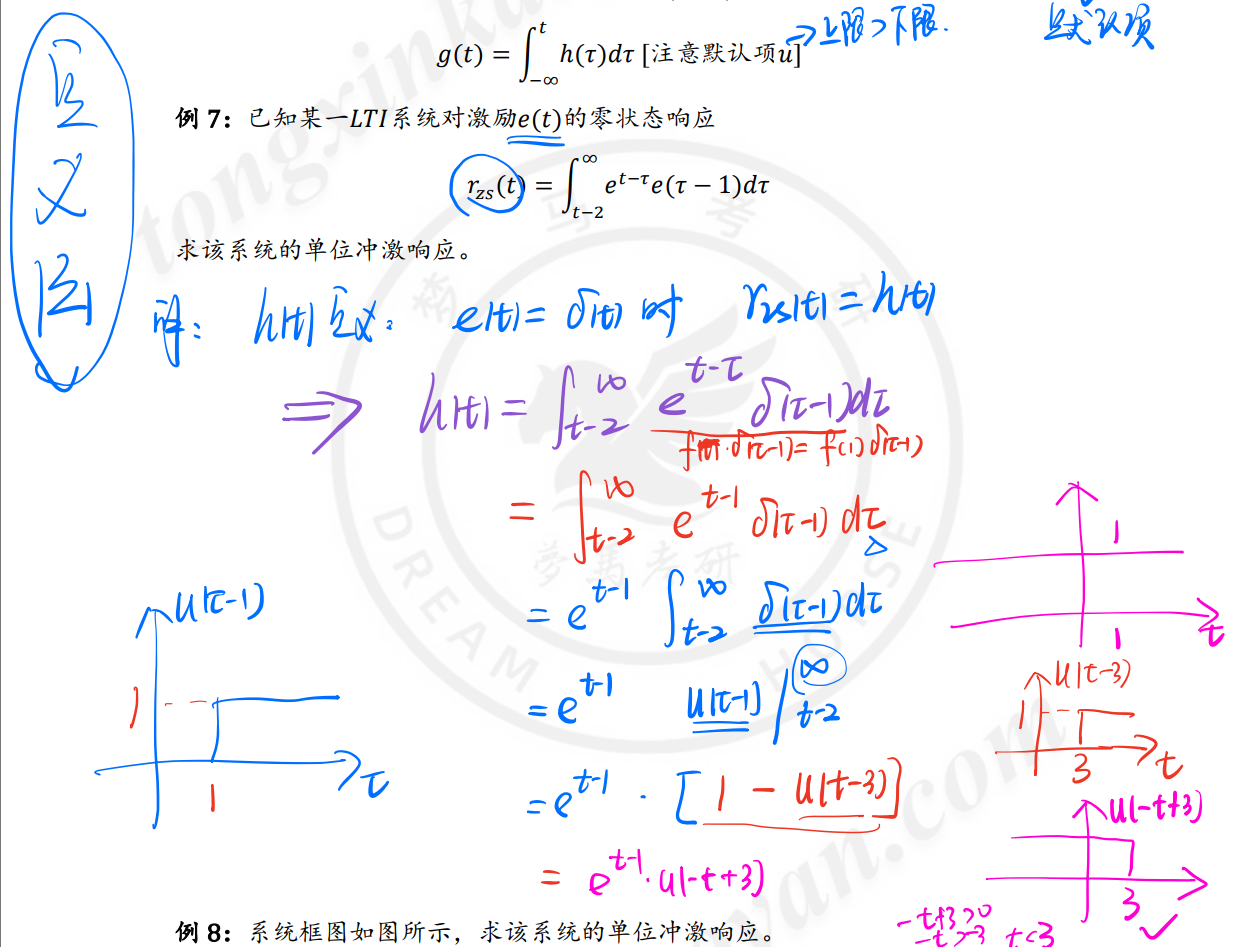 g(t) = ∫_{-∞}^{t} h(τ)dτ [注意默认项u] ⇒上限>下限. 默认项
例 7：已知某一LTI系统对激励e(t)的零状态响应
r_{zs}(t) = ∫_{t-2}^{∞} e^{t-τ}e(τ − 1)dτ
求该系统的单位冲激响应。
定义法
解： h(t)定义： e(t)= δ(t) 时 r_{zs}(t)= h(t)
⇒ h(t) = ∫_{t-2}^{∞} e^{t-τ} δ(τ-1)dτ
δ(τ-1)= f(1) δ(τ-1)
= ∫_{t-2}^{∞} e^{t-1} δ(τ-1) dτ
= e^{t-1} ∫_{t-2}^{∞} δ(τ-1)dτ
= e^{t-1} u(τ-1) |_{t-2}^{∞}
= e^{t-1} · [1 − u(t-3)]
= e^{t-1}·u(-t+3)
u(τ-1)
1
1
τ
1
1
t
u(t-3)
1
3
t
u(-t+3)
3
-t+3>0
-t>-3 t<3
例 8：系统框图如图所示，求该系统的单位冲激响应。
梦马考研
DREAM HOUSE
tongxinka
yan.com